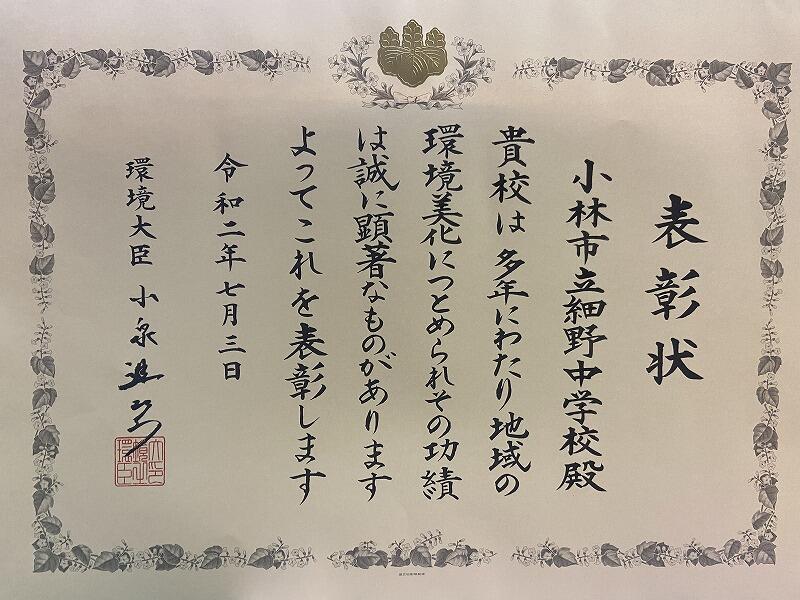 表彰状
小林市立細野中学校殿
貴校は多年にわたり地域の
環境美化につとめられその功績
は誠に顕著なものがあります
よってこれを表彰します
令和二年七月三日
環境大臣 小泉進次郎